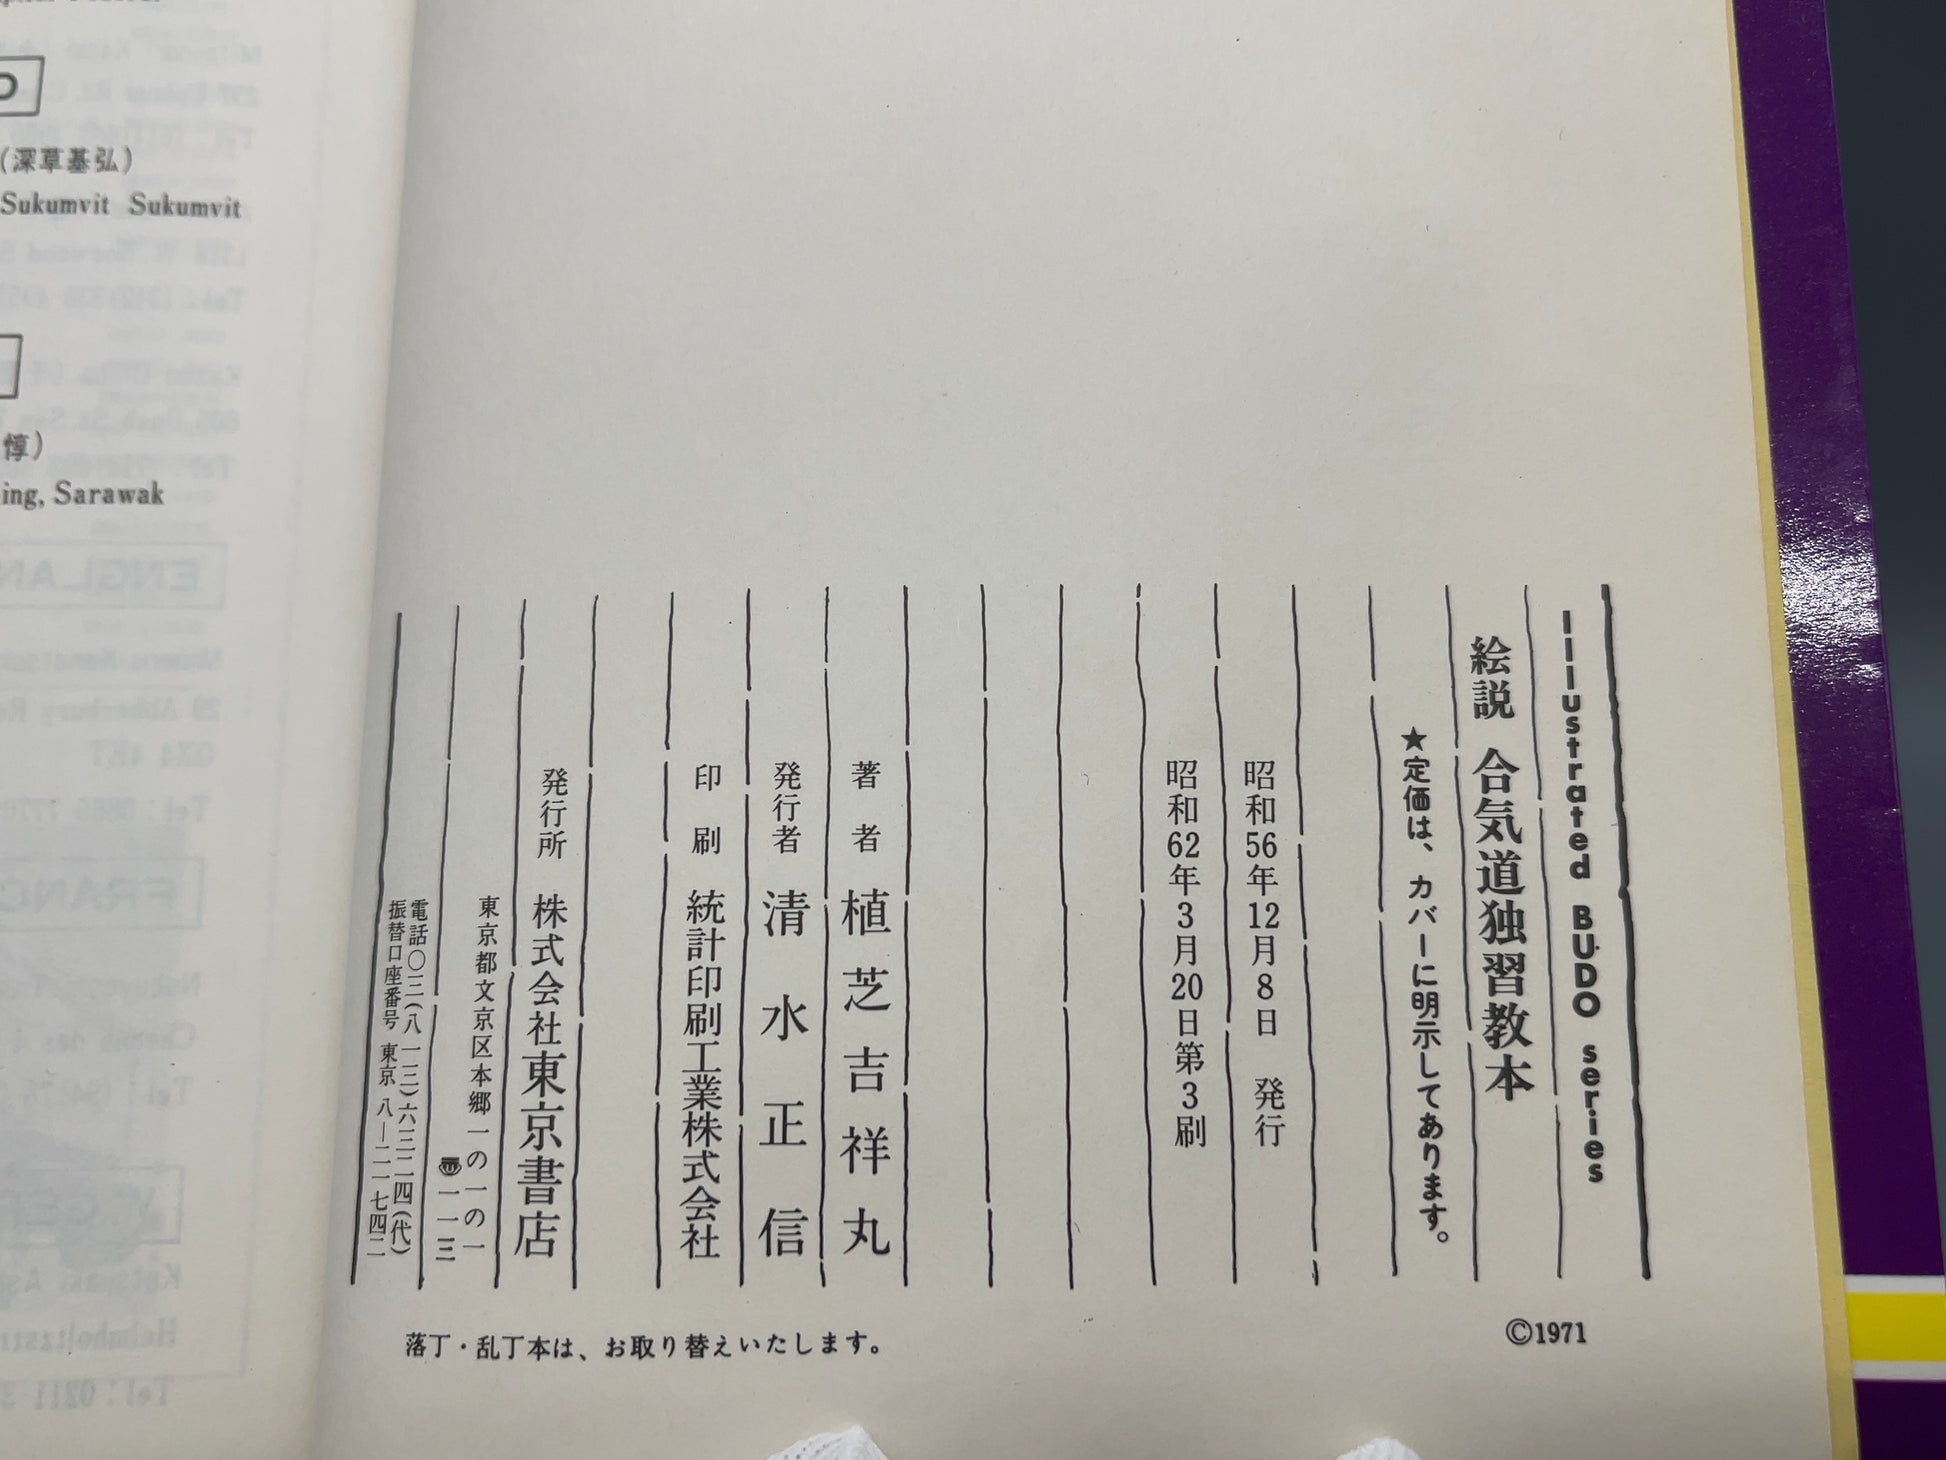 (深草基弘)
Sukumvit Sukumvit
惇)
ing, Sarawak
Illustrated BUDO series
絵説 合気道独習教本
★定価は、カバーに明示してあります。
昭和56年12月8日 発行
昭和62年3月20日第3刷
著者 植芝吉祥丸
発行者 清水正信
印刷 統計印刷工業株式会社
発行所 株式会社東京書店
東京都文京区本郷一の一の一
〠一一三
電話〇三(八一三)六三二四(代)
振替口座番号 東京 八―二一七四二
©1971
落丁・乱丁本は、お取り替えいたします。